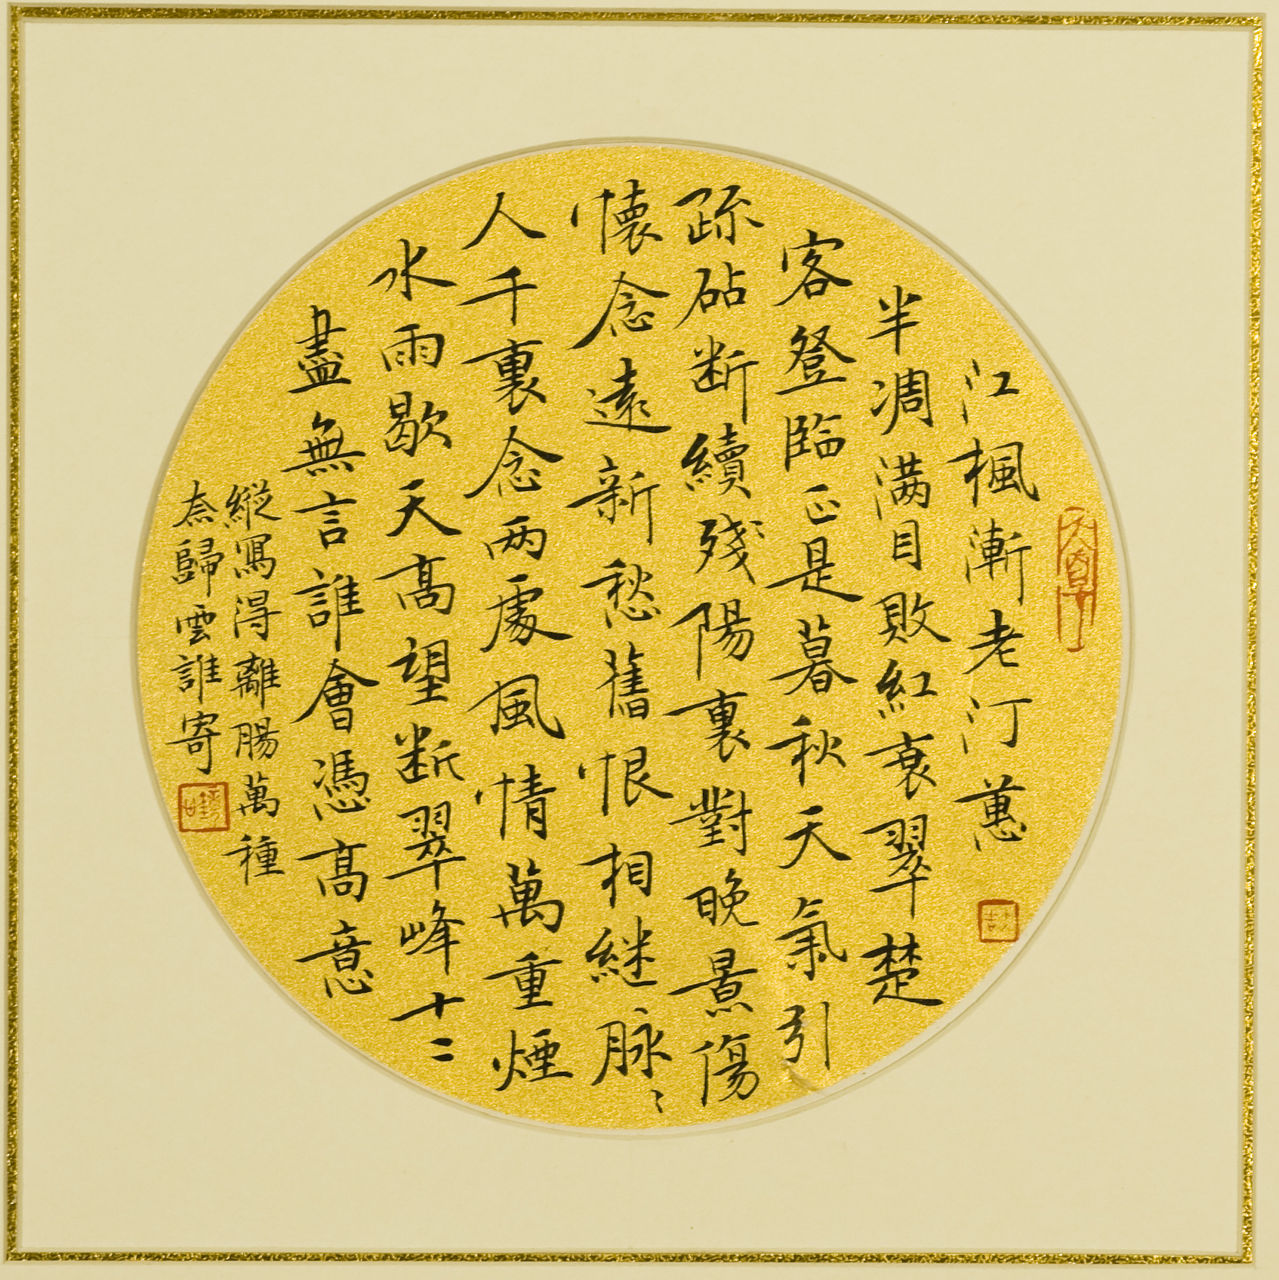 江楓漸老汀蕙
半凋满目敗紅衰翠楚
客登臨正是暮秋天氣引
疏砧断續殘陽裏對晚景傷
懷念遠新愁舊恨相継脉〻
人千裏念两處風情萬重煙
水雨歇天高望断翠峰十二
盡無言誰會憑高意
縱寫得離腸萬種
奈歸雲誰寄